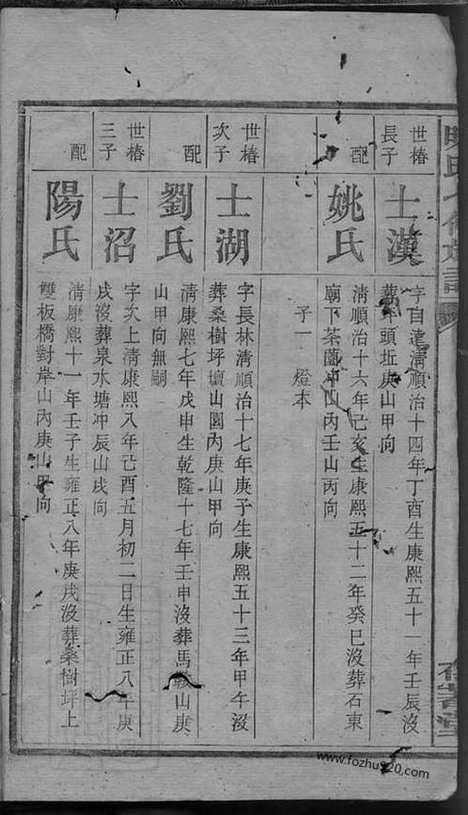 世椿長子
士漢
字自遠清順治十四年丁酉生康熙五十一年壬辰沒
頭坵庚山甲向
配
姚氏
清順治十六年己亥生康熙五十二年癸巳沒葬石東
廟下茶園冲山內壬山丙向
子一 燈本
世椿次子
士湖
字長林清順治十七年庚子生康熙五十三年甲午沒
葬桑樹坪壇山園內庚山甲向
配
劉氏
清康熙七年戊申生乾隆十七年壬申沒葬馬鞍山庚
山甲向無嗣
世椿三子
士沼
字次上清康熙八年己酉五月初二日生雍正八年庚
戌沒葬泉水塘冲辰山戌向
配
陽氏
清康熙十一年壬子生雍正八年庚戌沒葬桑樹坪上
雙板橋對岸山內庚山甲向
www.fozhu920.com